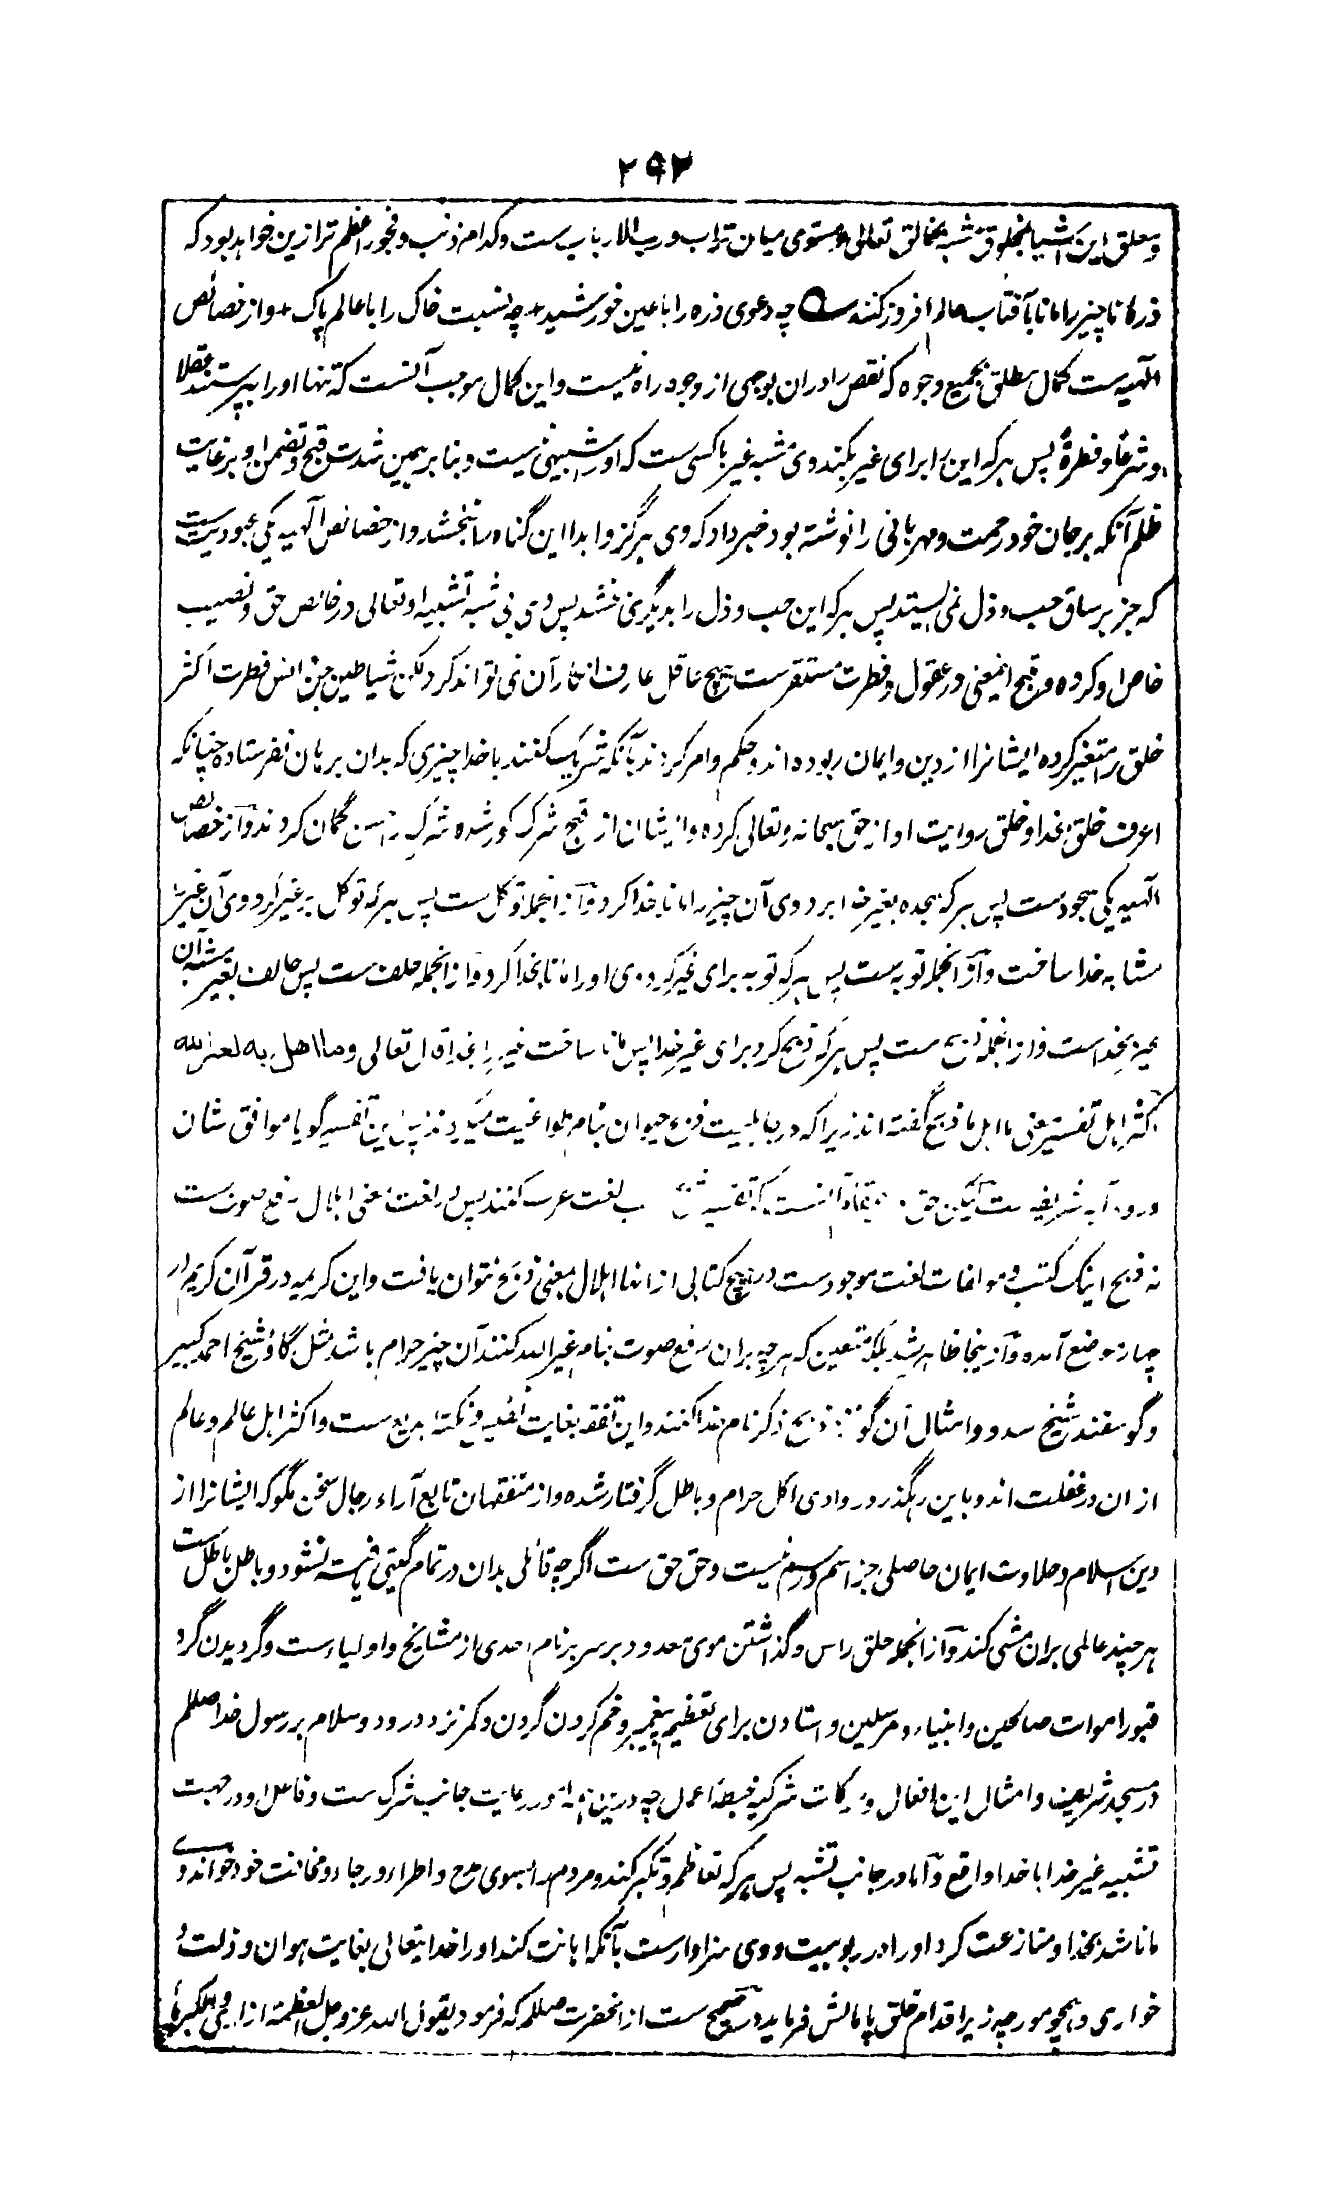 ۲۹۲
و معلق این اشیا بمخلوق مشبه بخالق تعالی و مستوی میان تراب و رب الارباب ست و کدام ذنب و فجور اعظم تر ازین خواهد بود که
ذرهٔ ناچیز را مانا بآفتاب عالم افروز کنند ے چه دعوی ذره را با عین خورشید + چه نسبت خاک را با عالم پاک + و از خصائص
الهیه ست کمال مطلق بجمیع وجوه که نقص را دران بوجهی از وجوه راه نیست و این کمال موجب آنست که تنها او را بپرستند عقلا
و شرعًا و فطرةً پس هر که این را برای غیر بکند وی مشبه غیر با کسی ست که او را شبیهی نیست و بنا بر همین شدت قبح و تضمن او بر غایت
ظلم آنکه بر جان خود رحمت و مهربانی را نوشته بود خبر داد که وی هرگز و ابدا این گناه را نبخشد و از خصائص آلهیه یکی عبودیت ست
که جز بر ساق حب و ذل نمی ایستد پس هر که این حب و ذل را بدیگری بخشد پس وی بی شبه تشبیه او تعالی در خالص حق و نصیب
خاص او کرده و قبح اینمعنی در عقول و فطرت مستقر ست هیچ عاقل عارف انکار آن نمی تواند کرد لکن شیاطین جن و انس فطرت اکثر
خلق را متغیر کرده ایشانرا از دین و ایمان ربوده اند و حکم و امر کردند بآنکه شریک کنند با خدا چیزی که بدان برهان نفرستاده چنانکه
اعرف خلق بخدا و خلق روایت او از حق سبحانه و تعالی کرده و ایشان از قبح شرک کور شده شرک را حسن گمان کردند و از خصائص
الهیه یکی سجود ست پس هر که سجده بغیر خدا برد وی آن چیز را مانا بخدا کرد و از انجمله توکل ست پس هر که توکل بر غیر کرد وی آن غیر را
مشابه خدا ساخت و از انجمله توبه ست پس هر که توبه برای غیر کرد وی او را مانا بخدا کرد و از انجمله حلف ست پس حالف بغیر مشبه آن
غیر بخدا است و از انجمله ذبح ست پس هر که ذبح کرد برای غیر خدا پس مانا ساخت غیر را بخدا قال تعالی وما اهل به لغیر الله
اکثر اهل تفسیر معنی ما اهل ما ذبح گفته اند زیرا که در جاهلیت ذبح حیوان بنام طواغیت میکردند پس این تفسیر گویا موافق شان
ورود آیه شریفه ست لیکن حق آنست که تفسیر بلغت عرب کنند پس در لغت معنی اهلال رفع صوت ست
نه ذبح اینک کتب و مولفات لغت موجود ست در هیچ کتابی از انها اهلال بمعنی ذبح نتوان یافت و این کریمه در قرآن کریم در
چهار موضع آمده و از ینجا ظاهر شد بلکه متعین که هر چه بران رفع صوت بنام غیر الله کنند آن چیز حرام باشد مثل گاؤ شیخ احمد کبیر
و گوسفند شیخ سدو و امثال آن گو نزد ذبح ذکر نام خدا کنند و این تفقه بغایت نفیس و نکته بدیع ست و اکثر اهل عالم و عالم
از ان در غفلت اند و باین رهگذر در وادی اکل حرام و باطل گرفتار شده و از متفقهان تابع آراء رجال سخن مگو که ایشانرا از
دین اسلام و حلاوت ایمان حاصلی جز اسم و رسم نیست و حق حق ست اگر چه قائلی بدان در تمام گیتی یافته نشود و باطل باطل ست
هر چند عالمی بران مشی کند و از انجمله حلق راس و گذاشتن موی معدود بر سر بنام احدی از مشایخ و اولیاء ست و گردیدن گرد
قبور اموات صالحین و انبیاء و مرسلین و استادن برای تعظیم پیغمبر و خم کردن گردن و کمر نزد درود و سلام بر رسول خدا صللم
در مسجد شریف و امثال این افعال و حرکات شرکیه خبیطه اعمال چه درین همه رعایت جانب شرک ست و فاعل او در جهت
تشبیه غیر خدا با خدا واقع و اما در جانب تشبه پس هر که تعاظم و تکبر کند و مردم را بسوی مدح و اطراء و رجاء و مخافت خود خواند وی
مانا شد بخدا و منازعت کرد او را در ربوبیت و وی سزاوار ست بآنکه اهانت کند او را خدا یتعالی بغایت هوان و ذلت و
خواری و همچو مورچه زیر اقدام خلق پا مالش فرماید در صحیح ست از انحضرت صللم که فرمود یقول الله عز و جل العظمة ازاری و الکبریاء